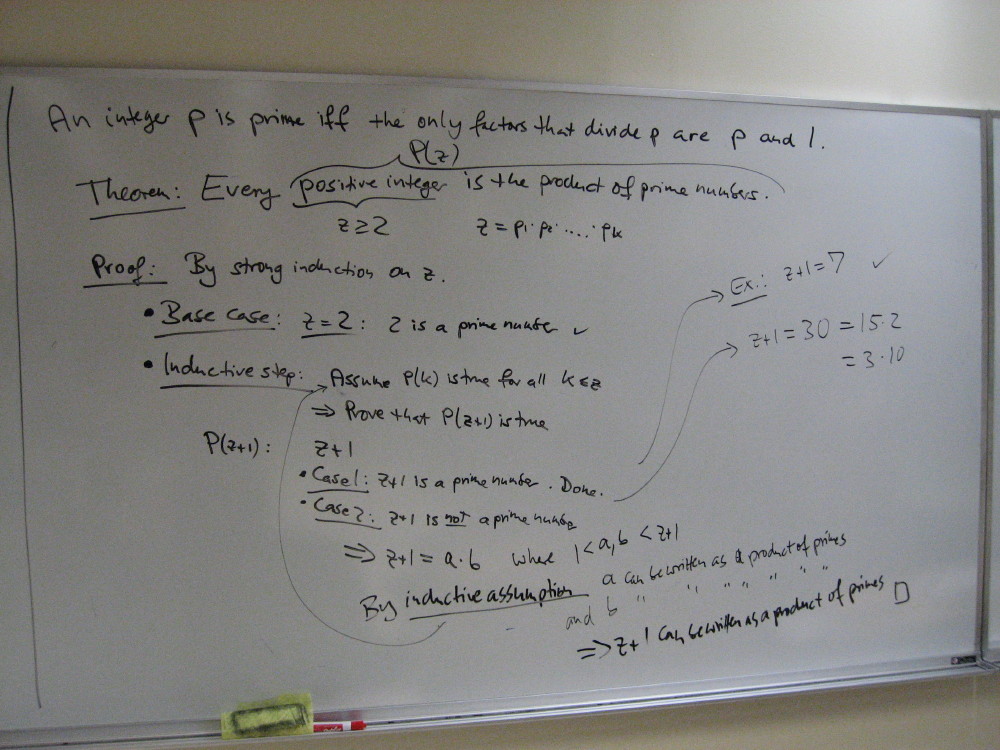 An integer p is prime iff the only factors that divide p are p and 1.
P(z)
Theorem: Every positive integer is the product of prime numbers.
z ≥ 2 z = p1 · p2 · .... · pk
Proof: By strong induction on z.
• Base case: z = 2: 2 is a prime number ✓
• Inductive step: Assume P(k) is true for all k ≤ z
⇒ Prove that P(z+1) is true
P(z+1): z+1
• Case 1: z+1 is a prime number. Done.
• Case 2: z+1 is not a prime number
⇒ z+1 = a·b where 1 < a,b < z+1
By inductive assumption a can be written as a product of primes
and b " " " " " " "
⇒ z+1 can be written as a product of primes □
Ex.: z+1 = 7 ✓
z+1 = 30 = 15·2
= 3·10